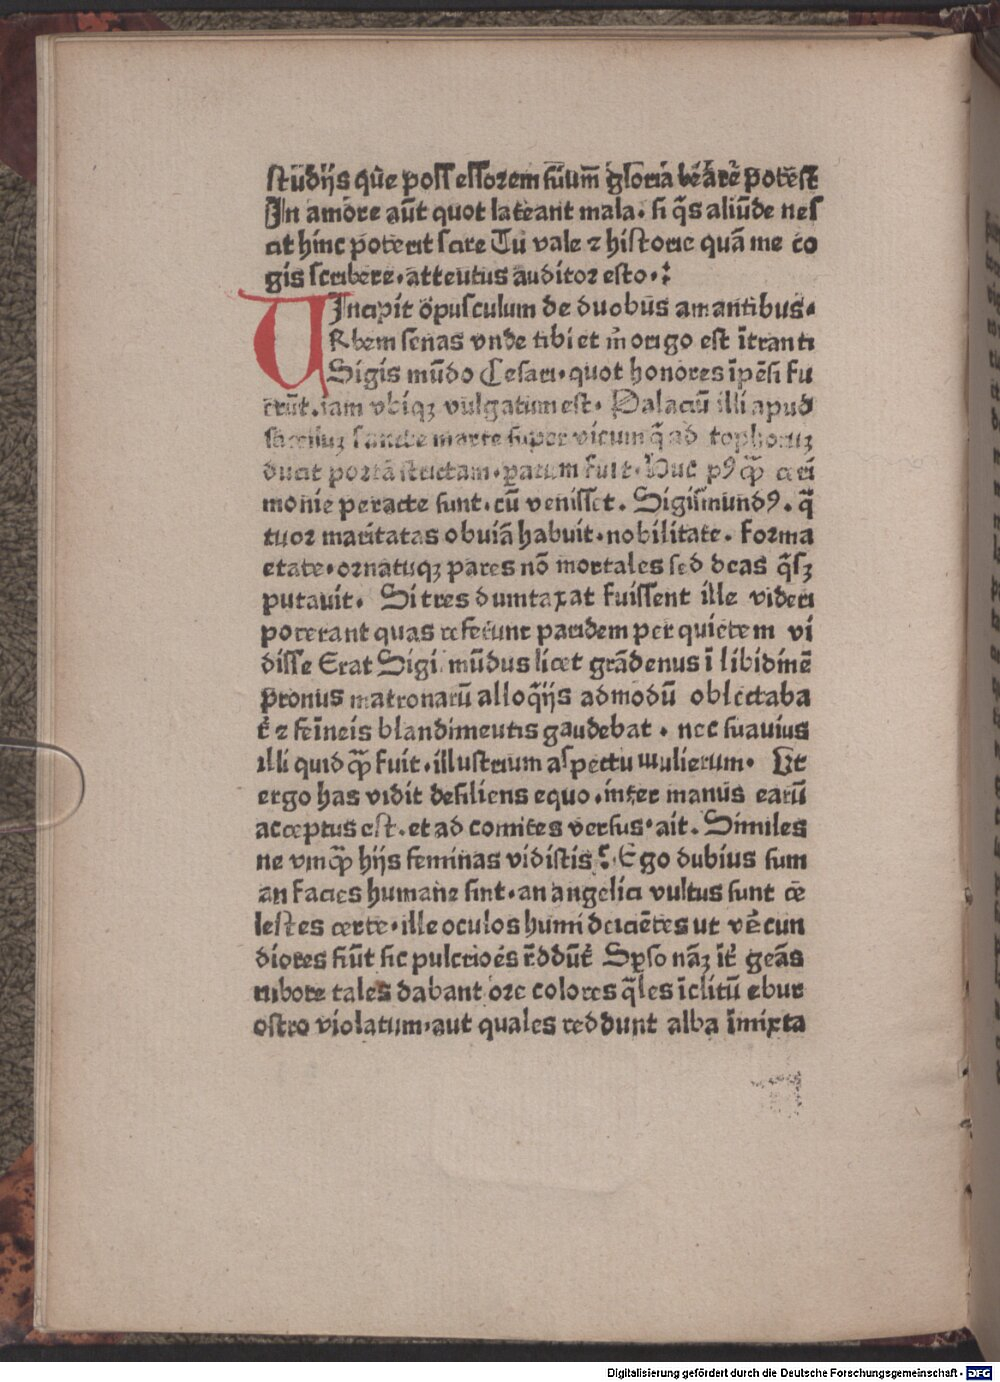 studijs que possessorem suum̄ gloria beare potest
In amore aūt quot lateant mala. si q̄s aliūde nes
cit hinc poterit scire Tu vale ⁊ historie quā me co
gis scribere. attentus auditor esto.
Incipit opusculum de duobus amantibus.
URbem senas vnde tibi et m̄ origo est ītranti
Sigis mūdo Cesari. quot honores īpēsi fu
erūt. iam vbiqꝫ vulgatum est. Palaciū illi apud
sacellūꝫ sancte marte super vicum q̄ ad tophoruꝫ
ducit portā strictam. paratum fuit. Huc pꝰ q̄ꝫ ceri
monie peracte sunt. cū venisset. Sigismundꝰ. q̄
tuor maritatas obuiā habuit. nobilitate. Forma
etate. ornatuqꝫ pares nō mortales sed deas q̄sꝫ
putauit. Si tres dumtaxat fuissent ille videri
poterant quas referunt paridem per quietem vi
disse Erat Sigi mūdus licet grādenus ī libidinē
pronus matronarū alloq̄ijs admodū oblectaba
t̄ ⁊ feīneis blandimentis gaudebat. nec suauius
illi quid q̄ꝫ fuit. illustrium aspectu mulierum. Ut
ergo has vidit desiliens equo. inter manus earū
acceptus est. et ad comites versus. ait. Similes
ne vmq̄ꝫ hijs feminas vidistis? Ego dubius sum
an facies humane sint. an angelici vultus sunt ce
lestes certe. ille oculos humi deiciētes ut vēcun
diores fiūt sic pulcrioēs r̄ddūt̄ Sparso nāꝫ īt̄ geās
rubore tales dabant ore colores q̄les īclitū ebur
ostro violatum. aut quales reddunt alba īmixta
Digitalisierung gefördert durch die Deutsche Forschungsgemeinschaft - DFG